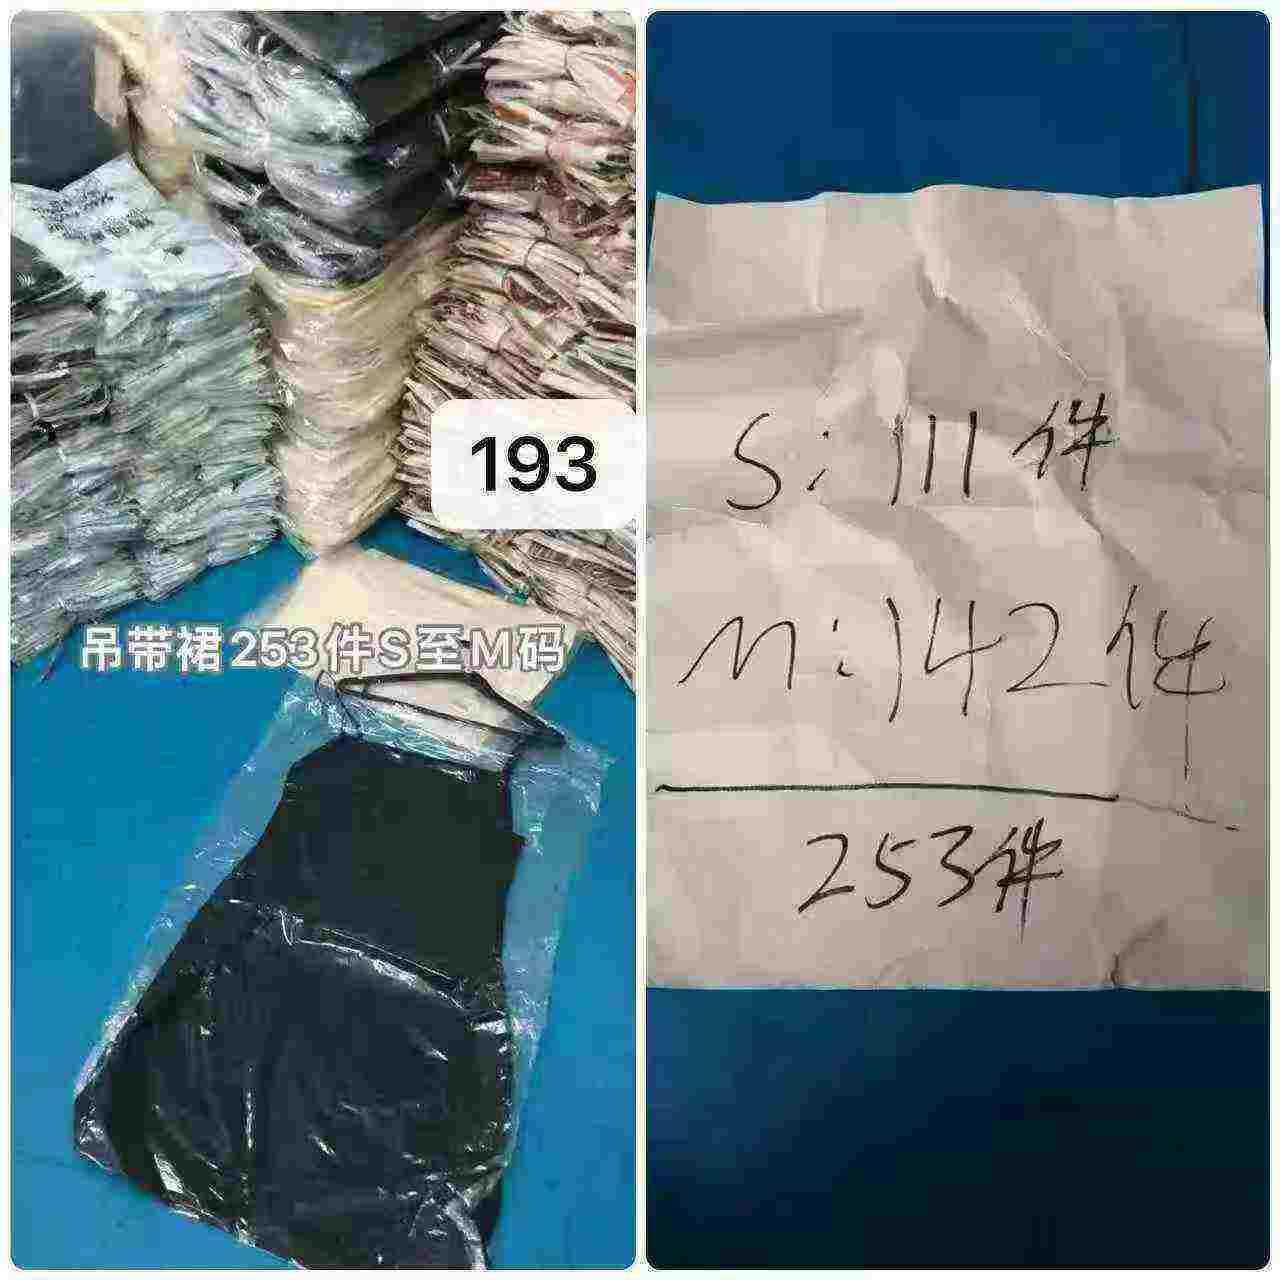 193
吊带裙253件S至M码
S:111件
M:142件
253件